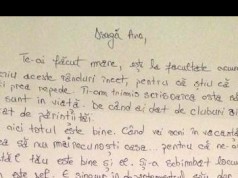 Dragă Ana,
Te-ai făcut mare, ești la facultate acum
scriu aceste rânduri încet, pentru că știu că
prea repede. Ți-am trimis scrisoarea asta să
sunt în viață. De când ai dat de cluburi ai
uitat de părinții tăi.
aici totul este bine. Când vei veni în vacanță
să nu mai recunoști casa. pentru că ne-am
tău este bine și el. Și-a schimbat locul
este șef. E singur în